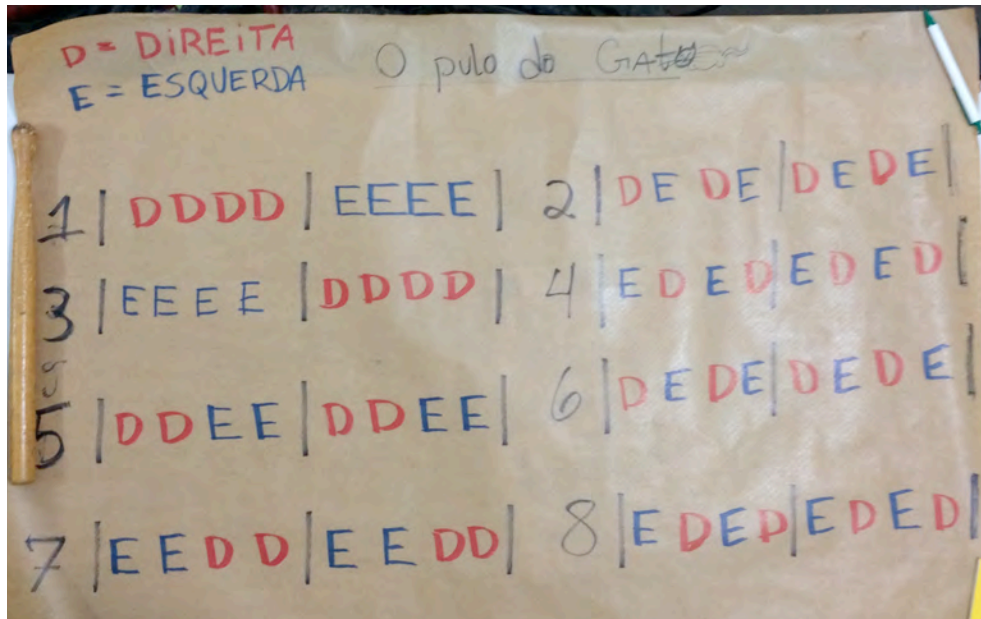 D = DiREiTA
E = ESQUERDA
O pulo do GATO
1 | DDDD | EEEE |
2 | DE DE | DEDE |
3 | EEEE | DDDD |
4 | EDED | EDED |
5 | DDEE | DDEE |
6 | DEDE | DEDE |
7 | EEDD | EEDD |
8 | EDED | EDED |